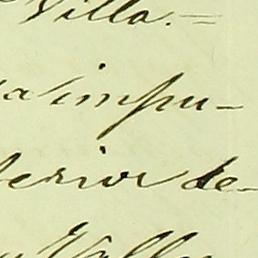 Villa.=
impu-
terior de-
Valle